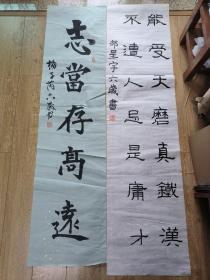 能受天磨真鐵漢
不遭人忌是庸才
郝星宇六歲書
志當存高遠
六歲書